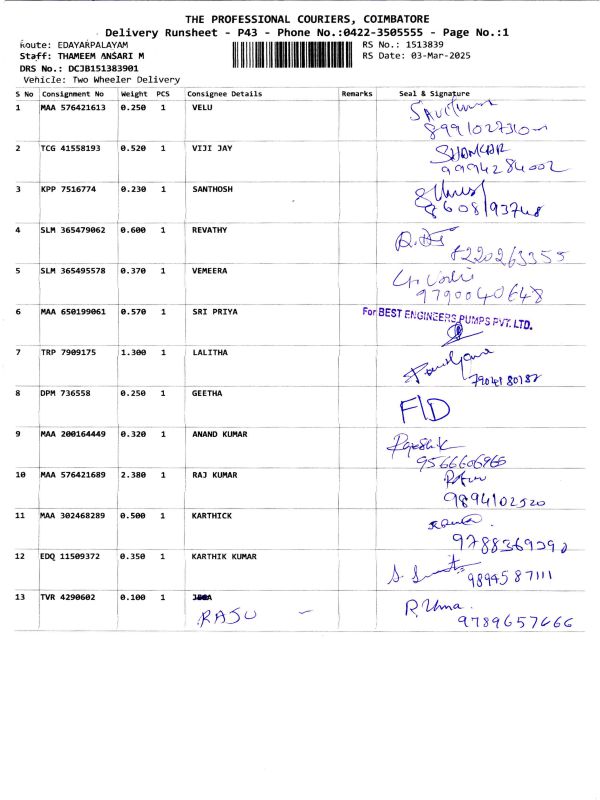 THE PROFESSIONAL COURIERS, COIMBATORE
Delivery Runsheet - P43 - Phone No.:0422-3505555 - Page No.:1
Route: EDAYARPALAYAM RS No.: 1513839
Staff: THAMEEM ANSARI M RS Date: 03-Mar-2025
DRS No.: DCJB151383901
Vehicle: Two Wheeler Delivery
S No Consignment No Weight PCS Consignee Details Remarks Seal & Signature
1 MAA 576421613 0.250 1 VELU
2 TCG 41558193 0.520 1 VIJI JAY SHANKAR
9994284002
3 KPP 7516774 0.230 1 SANTHOSH
4 SLM 365479062 0.600 1 REVATHY
8220263355
5 SLM 365495578 0.370 1 VEMEERA
9790040648
6 MAA 650199061 0.570 1 SRI PRIYA For BEST ENGINEERS PUMPS PVT. LTD.
7 TRP 7909175 1.300 1 LALITHA
7904180187
8 DPM 736558 0.250 1 GEETHA F/D
9 MAA 200164449 0.320 1 ANAND KUMAR
9566606965
10 MAA 576421689 2.380 1 RAJ KUMAR
9894102520
11 MAA 302468289 0.500 1 KARTHICK
12 EDQ 11509372 0.350 1 KARTHIK KUMAR
9894587111
13 TVR 4290602 0.100 1 R. Uma.
RASU 9789657666